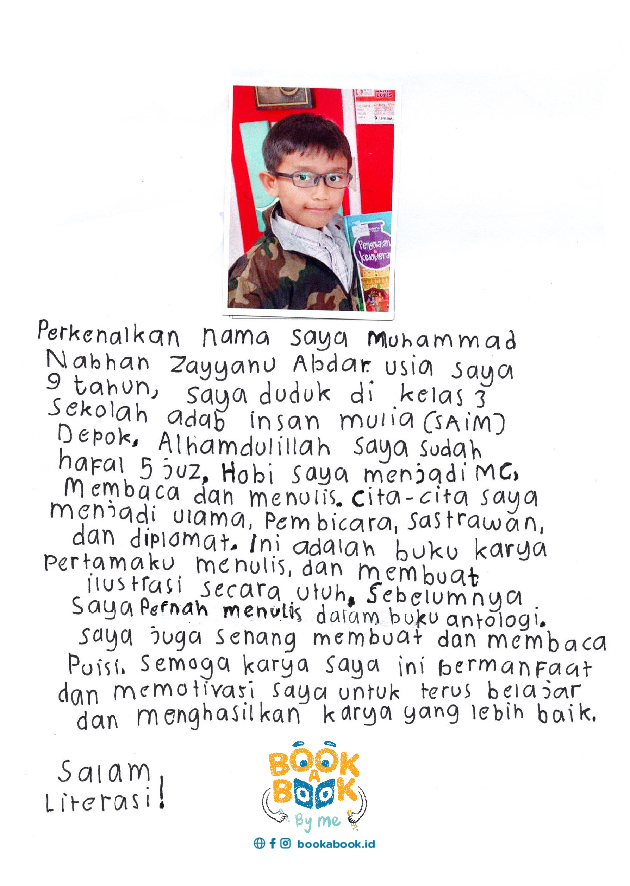 Pengawasan
Kedokteran
Perkenalkan nama saya Muhammad
Nabhan Zayyanu Abdar. usia saya
9 tahun, saya duduk di kelas 3
Sekolah adab insan mulia (SAIM)
Depok, Alhamdulillah saya sudah
hafal 5 juz, Hobi saya menjadi MC,
Membaca dan menulis. Cita-cita saya
menjadi ulama, Pembicara, Sastrawan,
dan diplomat. Ini adalah buku karya
Pertamaku menulis, dan membuat
ilustrasi secara utuh, Sebelumnya
Saya Pernah menulis dalam buku antologi.
saya juga senang membuat dan membaca
Puisi. Semoga karya saya ini bermanfaat
dan memotivasi saya untuk terus belajar
dan menghasilkan karya yang lebih baik.
Salam
Literasi!
BOOK
A
BOOK
By me
bookabook.id